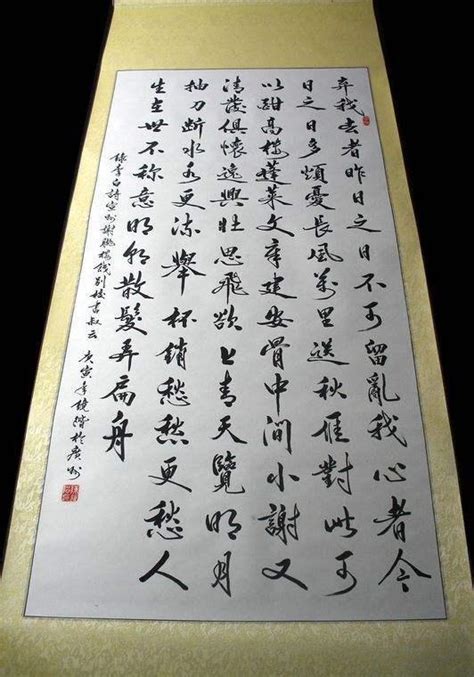 弃我去者昨日之日不可留亂我心者今
日之日多煩憂長風萬里送秋雁對此可
以酣高樓蓬萊文章建安骨中間小謝又
清發俱懷逸興壯思飛欲上青天覽明月
抽刀断水水更流舉杯銷愁愁更愁人
生在世不称意明朝散髮弄扁舟
録李白詩宣州謝朓樓餞别校書叔云 庚寅年於廣州